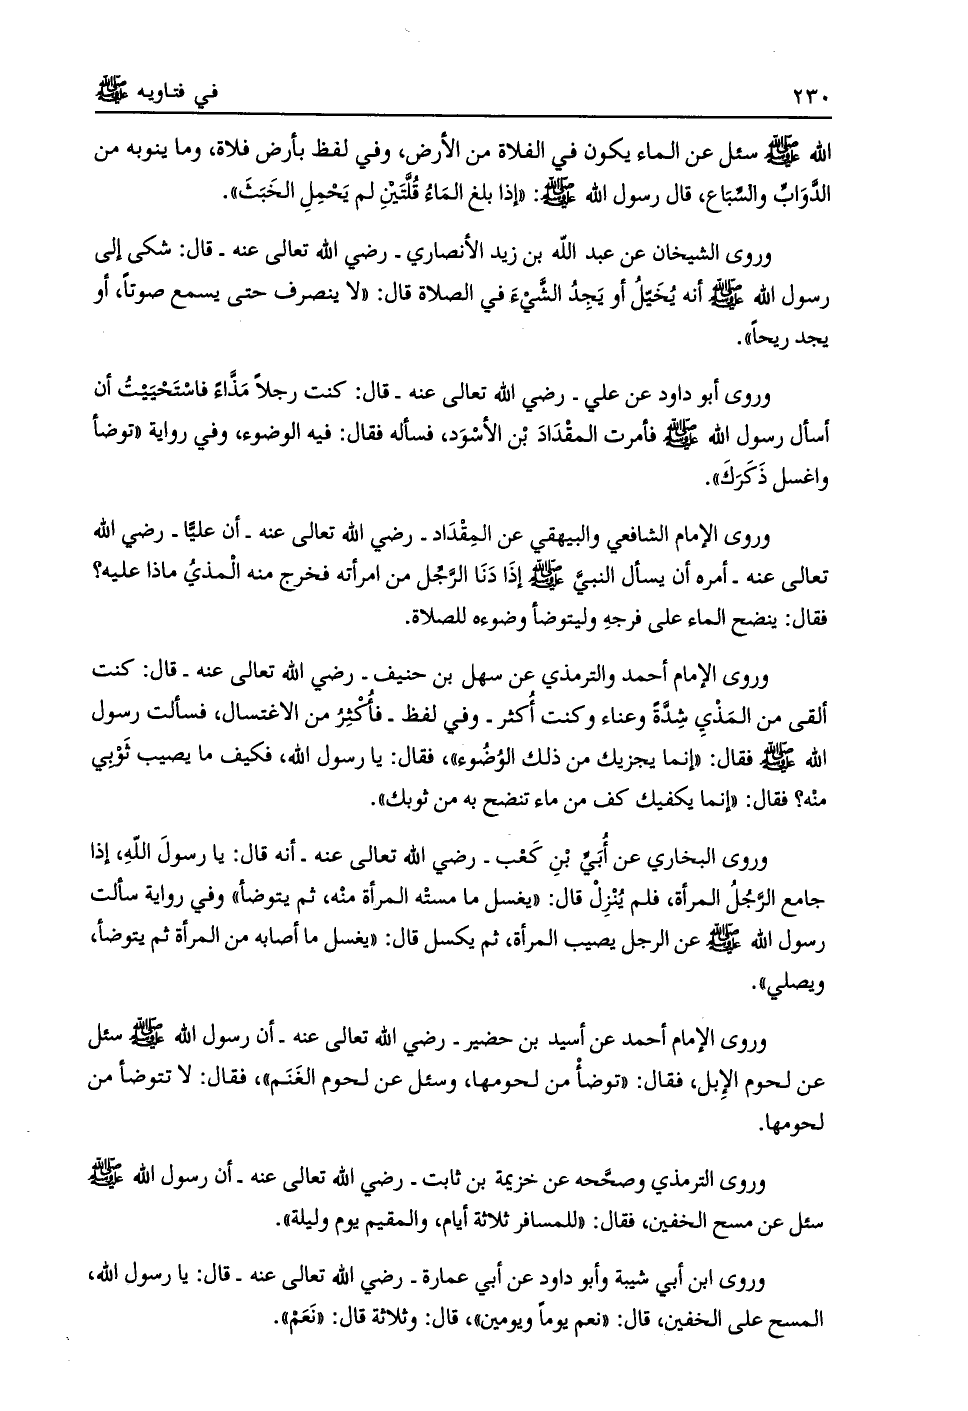 ٢٣٠ في فتاويه ﷺ
الله ﷺ سئل عن الماء يكون في الفلاة من الأرض، وفي لفظ بأرض فلاة، وما ينوبه من
الدَّوَابِّ والسِّبَاع، قال رسول الله ﷺ: «إذا بلغ المَاءُ قُلَّتَيْنِ لم يَحْمِلِ الخَبَثَ».
وروى الشيخان عن عبد اللّه بن زيد الأنصاري ـ رضي الله تعالى عنه ـ قال: شكى إلى
رسول الله ﷺ أنه يُخَيَّلُ أو يَجِدُ الشَّيْءَ في الصلاة قال: «لا ينصرف حتى يسمع صوتاً، أو
يجد ريحاً».
وروى أبو داود عن علي ـ رضي الله تعالى عنه ـ قال: كنت رجلاً مَذَّاءً فاسْتَحْيَيْتُ أن
أسأل رسول الله ﷺ فأمرت المقْدَادَ بْن الأسْوَد، فسأله فقال: فيه الوضوء، وفي رواية «توضأ
واغسل ذَكَرَكَ».
وروى الإمام الشافعي والبيهقي عن المِقْدَاد ـ رضي الله تعالى عنه ـ أن عليًّا ـ رضي الله
تعالى عنه ـ أمره أن يسأل النبيَّ ﷺ إذَا دَنَا الرَّجُل من امرأته فخرج منه الْمذيُ ماذا عليه؟
فقال: ينضح الماء على فرجهِ وليتوضأ وضوءه للصلاة.
وروى الإمام أحمد والترمذي عن سهل بن حنيف ـ رضي الله تعالى عنه ـ قال: كنت
ألقى من المَذْيِ شِدَّةً وعناء وكنت أُكثر ـ وفي لفظ ـ فأُكْثِرُ من الاغتسال، فسألت رسول
الله ﷺ فقال: «إنما يجزيك من ذلك الوُضُوء»، فقال: يا رسول الله، فكيف ما يصيب ثَوْبِي
منْه؟ فقال: «إنما يكفيك كف من ماء تنضح به من ثوبك».
وروى البخاري عن أُبَيِّ بْنِ كَعْب ـ رضي الله تعالى عنه ـ أنه قال: يا رسولَ اللّهِ، إذا
جامع الرَّجُلُ المرأة، فلم يُنْزِلْ قال: «يغسل ما مستْه المرأة منْه، ثم يتوضأ» وفي رواية سألت
رسول الله ﷺ عن الرجل يصيب المرأة، ثم يكسل قال: «يغسل ما أصابه من المرأة ثم يتوضأ،
ويصلي».
وروى الإمام أحمد عن أسيد بن حضير ـ رضي الله تعالى عنه ـ أن رسول الله ﷺ سئل
عن لحوم الإبل، فقال: «توضأْ من لحومها، وسئل عن لحوم الغَنَم»، فقال: لا تتوضأ من
لحومها.
وروى الترمذي وصحَّحه عن خزيمة بن ثابت ـ رضي الله تعالى عنه ـ أن رسول الله ﷺ
سئل عن مسح الخفين، فقال: «للمسافر ثلاثة أيام، والمقيم يوم وليلة».
وروى ابن أبي شيبة وأبو داود عن أبي عمارة ـ رضي الله تعالى عنه ـ قال: يا رسول الله،
المسح على الخفين، قال: «نعم يوماً ويومين»، قال: وثلاثة قال: «نَعَمْ».